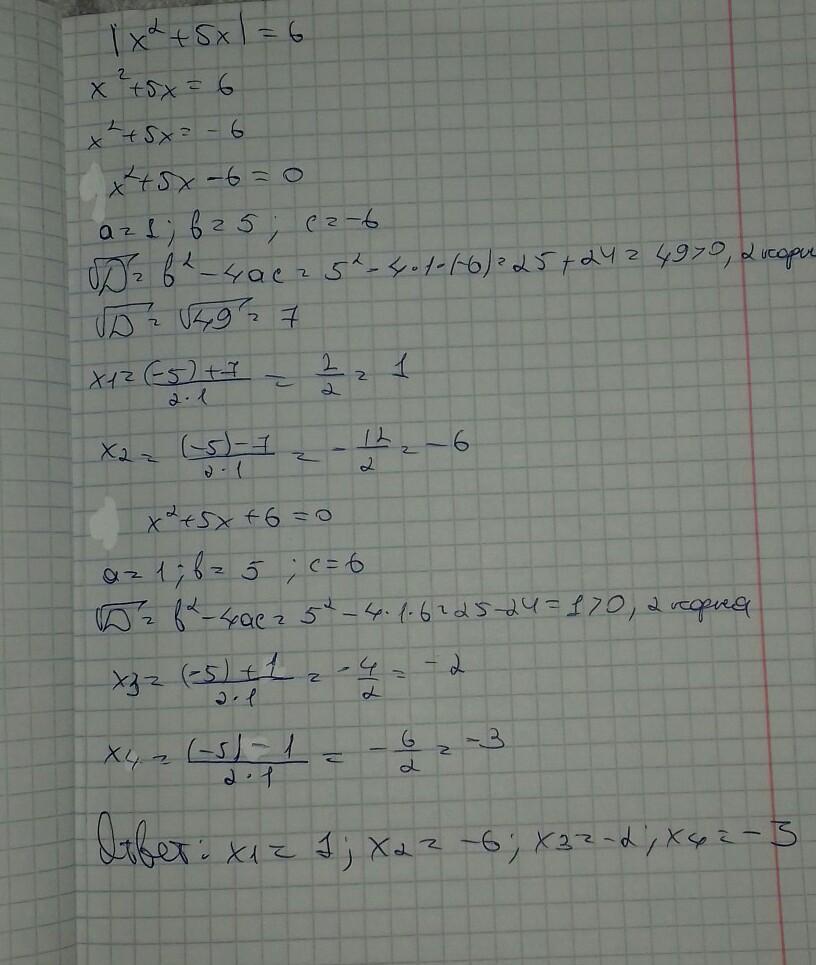 |x²+5x|=6
x²+5x=6
x²+5x=-6
x²+5x-6=0
a=1; b=5; c=-6
√D=b²-4ac=5²-4·1·(-6)=25+24=49>0, 2 корн
√D=√49=7
x1=(-5)+7/2·1=2/2=1
x2=(-5)-7/2·1=-12/2=-6
x²+5x+6=0
a=1; b=5; c=6
√D=b²-4ac=5²-4·1·6=25-24=1>0, 2 корня
x3=(-5)+1/2·1=-4/2=-2
x4=(-5)-1/2·1=-6/2=-3
Ответ: x1=1; x2=-6; x3=-2; x4=-3